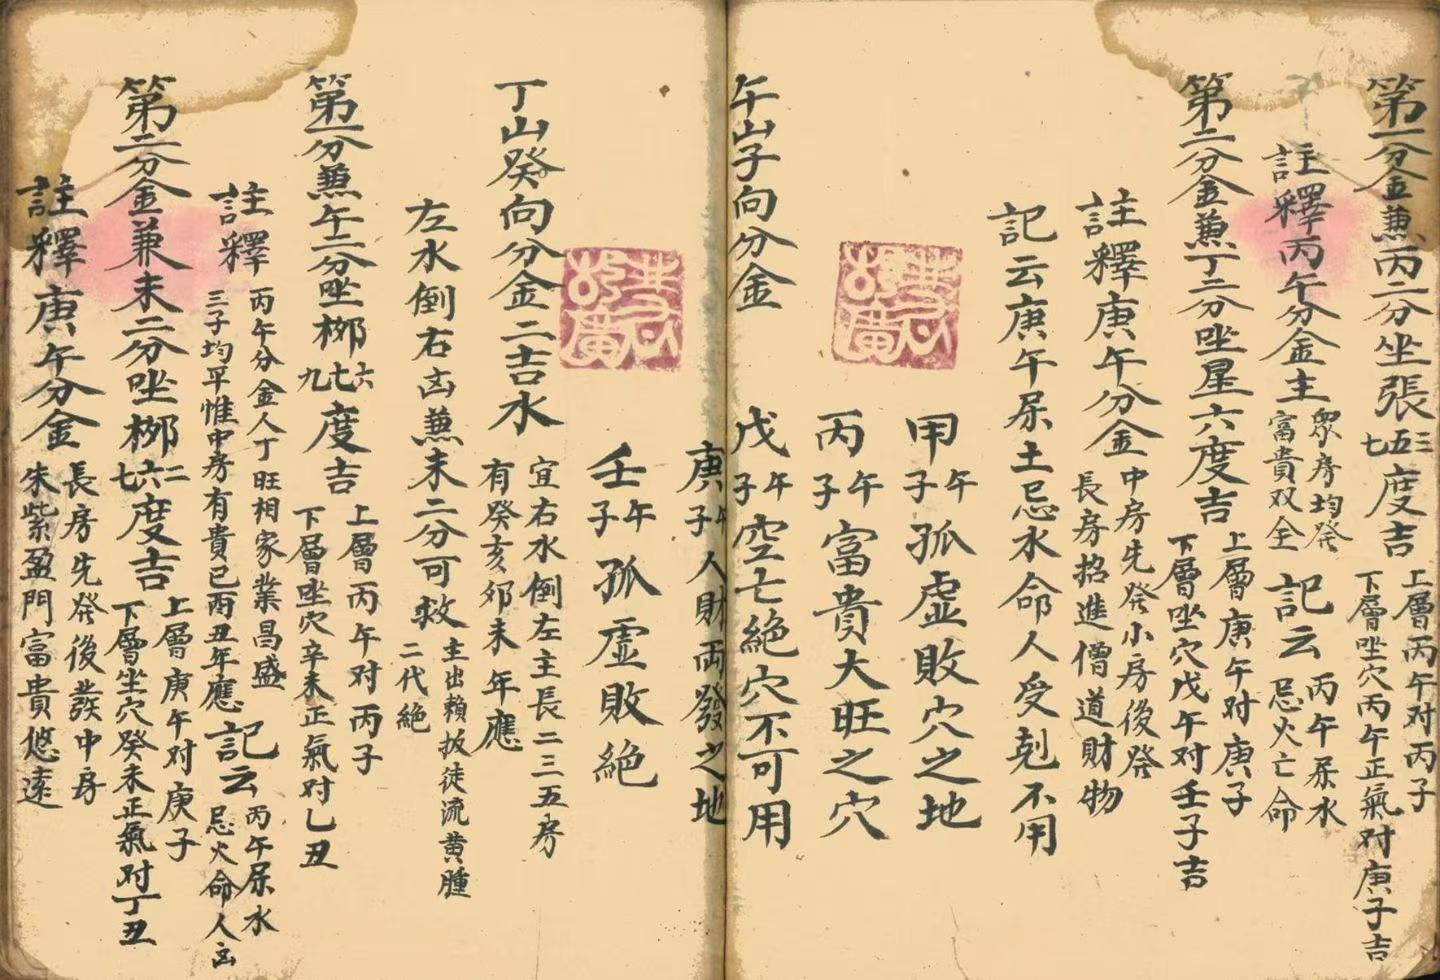 第一分金兼丙二分坐張三五七度吉
上層丙午对丙子
下層坐穴丙午正氣对庚子吉
註釋丙午分金主
眾房均發
富貴双全
記云
丙午屬水
忌火亡命
第二分金兼丁二分坐星六度吉
上層庚午对庚子
下層坐穴戊午对壬子吉
註釋庚午分金
中房先發小房後發
長房招進僧道財物
記云庚午屬土忌水命人受剋不用
甲午子孤虛敗穴之地
丙午子富貴大旺之穴
戊午子空亡絕穴不可用
午山子向分金
庚午子人財両發之地
壬午子孤虛敗絕
丁山癸向分金二吉水
宜右水倒左主長二三五房
有癸亥卯未年應
左水倒右凶兼未二分可救
主出賴扳徒流黄腫
二代絕
第一分兼午二分坐柳六七九度吉
上層丙午对丙子
下層坐穴辛未正氣对乙丑
註釋
丙午分金人丁旺相家業昌盛
三子均平惟中房有貴巳酉丑年應
記云
丙午屬水
忌火命人凶
第二分金兼未二分坐柳二六七度吉
上層庚午对庚子
下層坐穴癸未正氣对丁丑
註釋庚午分金
長房先發後發中房
朱紫盈門富貴悠遠